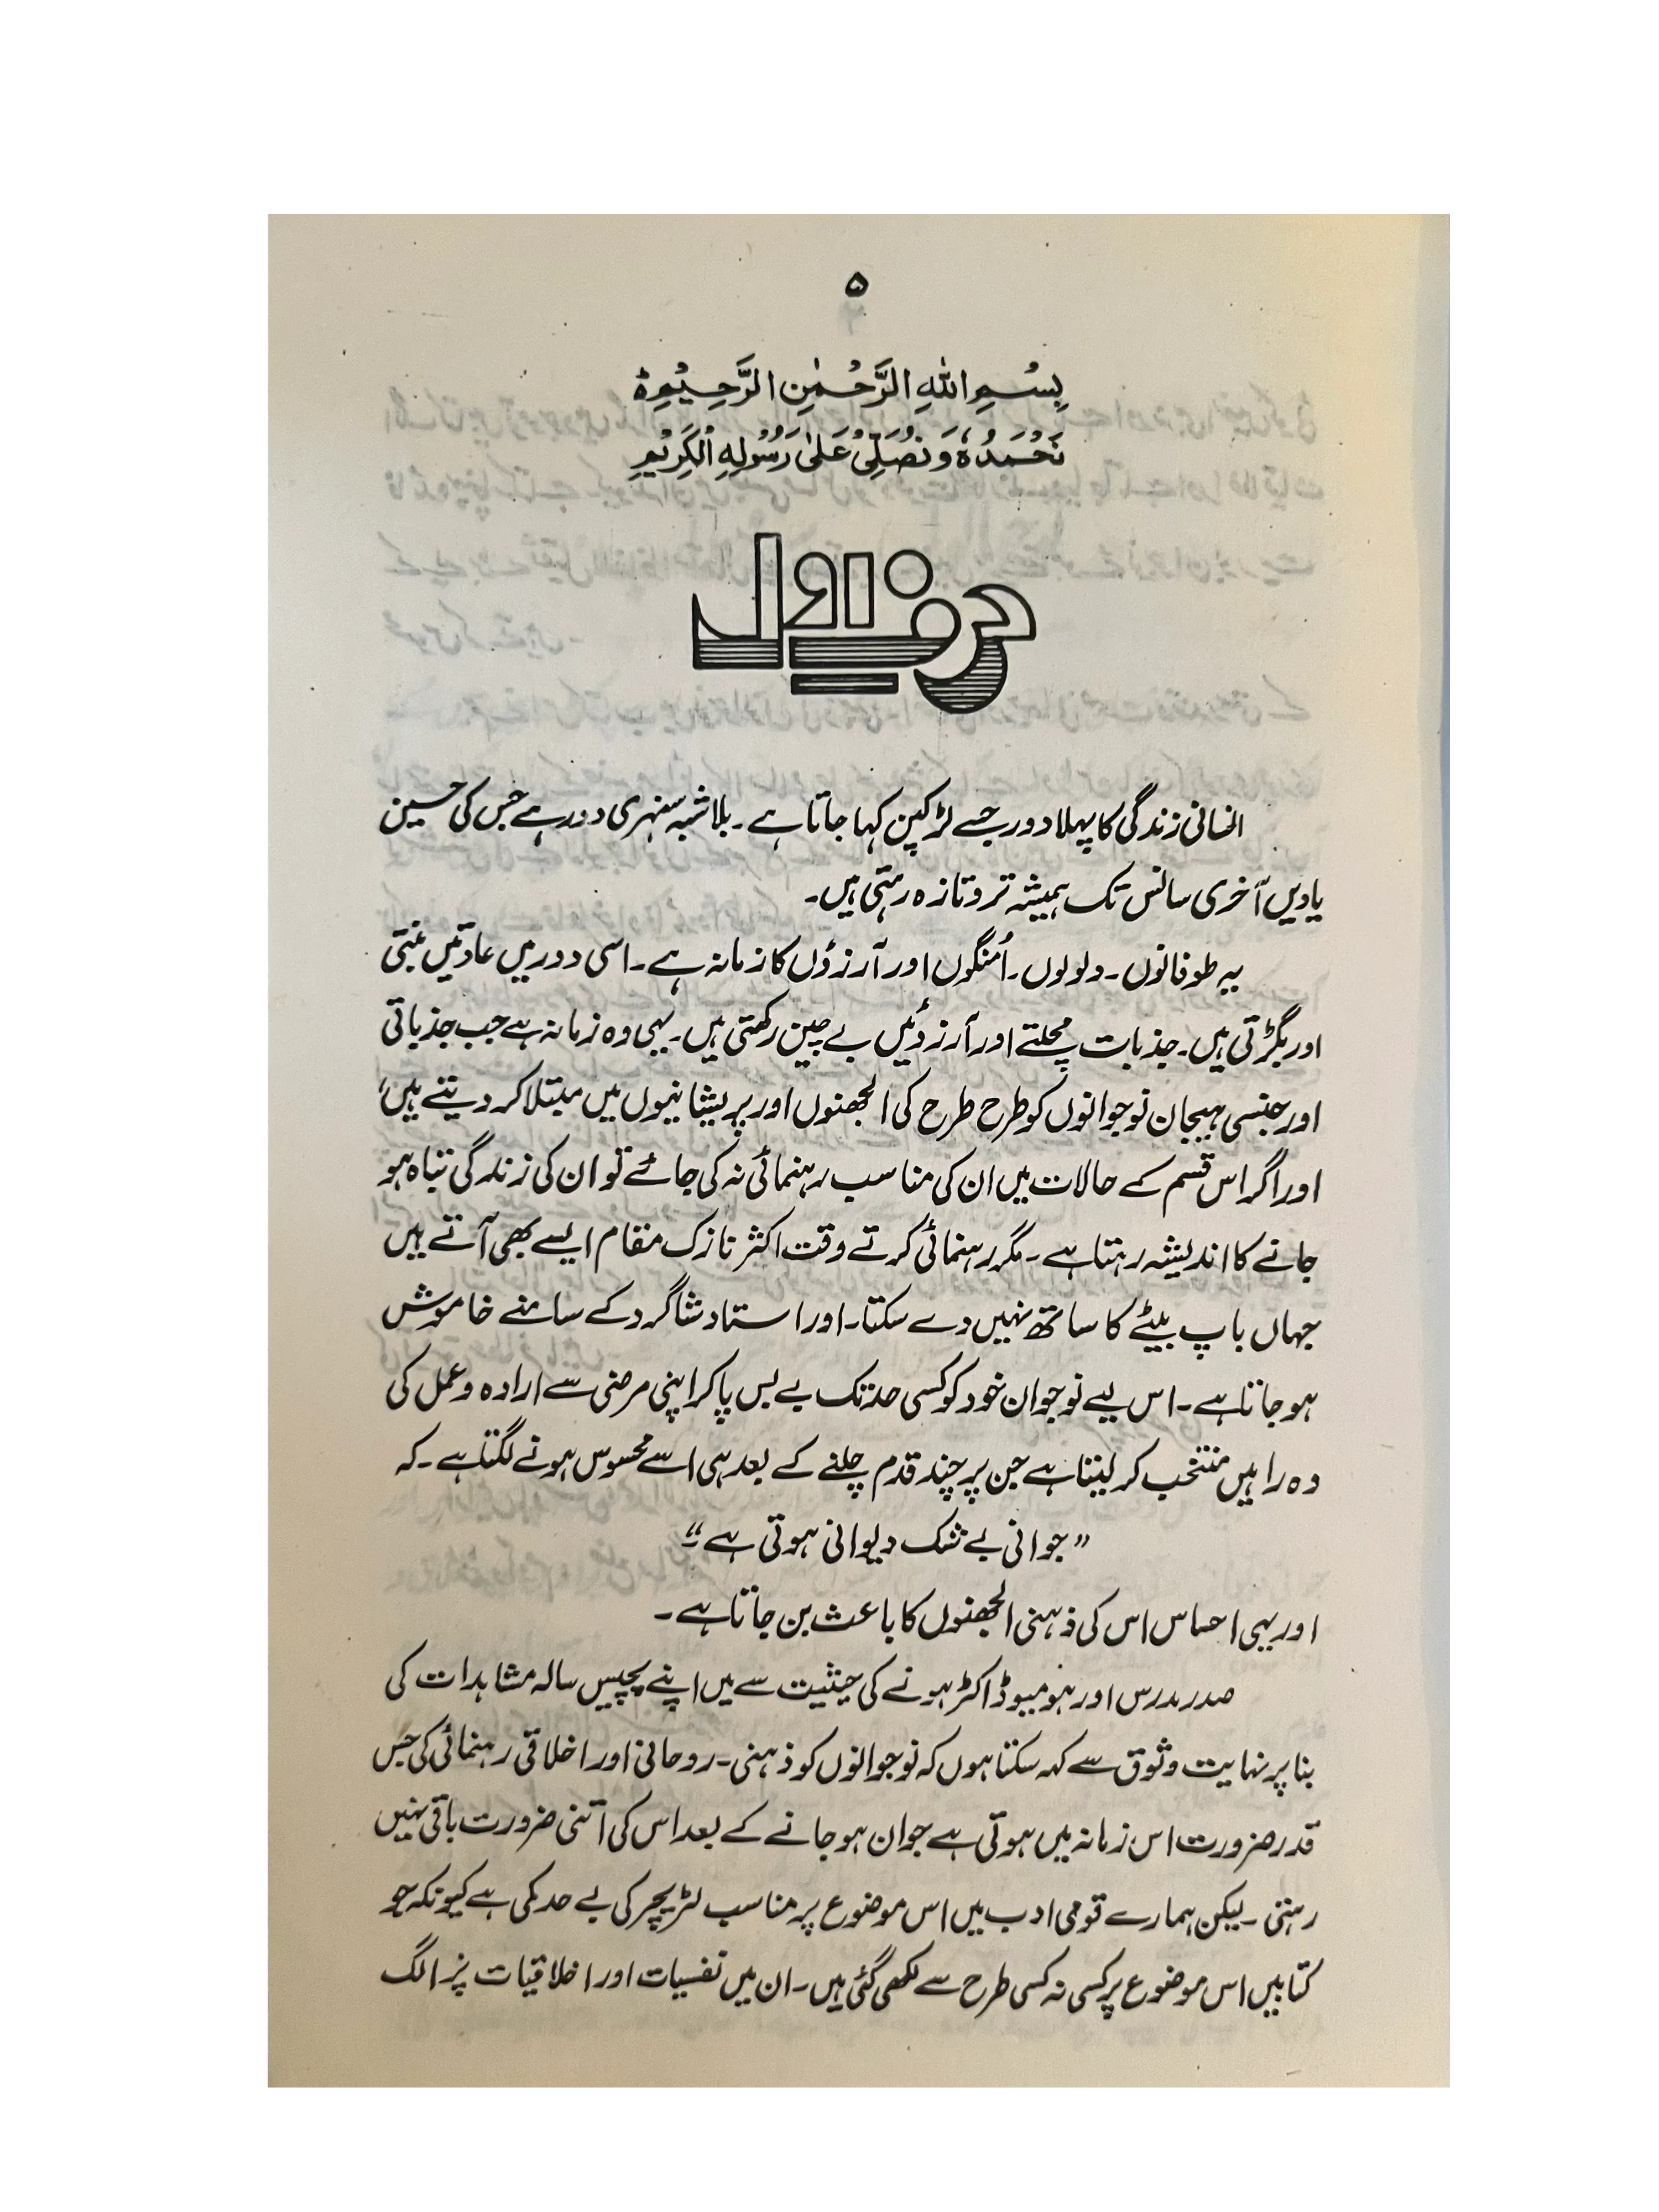 ۵
بِسْمِ اللّٰهِ الرَّحْمٰنِ الرَّحِيْمِ ۝
نَحْمَدُهٗ وَنُصَلِّیْ عَلٰی رَسُوْلِهِ الْكَرِيْمِ
حرفِ اول
انسانی زندگی کا پہلا دور جسے لڑکپن کہا جاتا ہے۔ بلاشبہ سنہری دور ہے جس کی حسین
یادیں آخری سانس تک ہمیشہ تروتازہ رہتی ہیں۔
یہ طوفانوں۔ ولولوں۔ اُمنگوں اور آرزوؤں کا زمانہ ہے۔ اسی دور میں عادتیں بنتی
اور بگڑتی ہیں۔ جذبات مچلتے اور آرزوئیں بے چین رکھتی ہیں۔ یہی وہ زمانہ ہے جب جذباتی
اور جنسی ہیجان نوجوانوں کو طرح طرح کی الجھنوں اور پریشانیوں میں مبتلا کر دیتے ہیں،
اور اگر اس قسم کے حالات میں ان کی مناسب رہنمائی نہ کی جائے تو ان کی زندگی تباہ ہو
جانے کا اندیشہ رہتا ہے۔ مگر رہنمائی کرتے وقت اکثر نازک مقام ایسے بھی آتے ہیں
جہاں باپ بیٹے کا ساتھ نہیں دے سکتا۔ اور استاد شاگرد کے سامنے خاموش
ہو جاتا ہے۔ اس لیے نوجوان خود کو کسی حد تک بے بس پا کر اپنی مرضی سے ارادہ و عمل کی
وہ راہیں منتخب کر لیتا ہے جن پر چند قدم چلنے کے بعد ہی اسے محسوس ہونے لگتا ہے۔ کہ
”جوانی بے شک دیوانی ہوتی ہے“۔
اور یہی احساس اس کی ذہنی الجھنوں کا باعث بن جاتا ہے۔
صدر مدرس اور ہومیو ڈاکٹر ہونے کی حیثیت سے میں اپنے پچیس سالہ مشاہدات کی
بنا پر نہایت وثوق سے کہہ سکتا ہوں کہ نوجوانوں کو ذہنی۔ روحانی اور اخلاقی رہنمائی کی جس
قدر ضرورت اس زمانہ میں ہوتی ہے جوان ہو جانے کے بعد اس کی اتنی ضرورت باقی نہیں
رہتی۔ لیکن ہمارے قومی ادب میں اس موضوع پر مناسب لٹریچر کی بے حد کمی ہے کیونکہ جو
کتابیں اس موضوع پر کسی نہ کسی طرح سے لکھی گئی ہیں۔ ان میں نفسیات اور اخلاقیات پر الگ